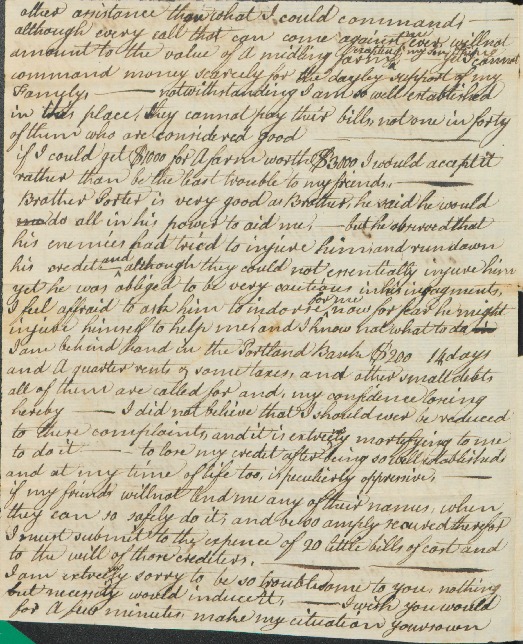 other assistance than what I could command —
although every call that can come against me ever will not
amount to the value of a midling farm, yet I cannot
command money scarcely for the dayley support of my
Family, — notwithstanding I am so well established
in this place, they cannot pay their bills, not one in forty
of them who are considered good —
if I could get $1000 for A farm worth $3000 I would accept it
rather than be the least trouble to my friends. —
Brother Porter is very good as Brother, he said he would
do all in his power to aid me, — but he observed that
his enemies had tried to injure him and run down
his credit and although they could not essentially injure him
yet he was obliged to be very cautious in his ingagments,
I feel affraid to ask him to indorse for me now for fear he might
injure himself to help me and I know not what to do
I am behind hand in the Portland Bank $200 14 days
and A quarter rents & some taxes, and other small debts
all of them are called for and, my confidence loseing
hereby — I did not believe that I should ever be reduced
to these complaints, and it is extreely mortifying to me
to do it — to lose my credit after being so well established
and at my time of life too, is peculierly oppresive, —
if my friends will not lend me any of their names, when
they can so safely do it, and be so amply secured therefor
I must submit to the expence of 20 little bills of cost and
to the will of those crediters, —
I am extreely sorry to be so troublesome to you, nothing
but necesity would induce it, — I wish you would
for A few minutes, make my cituation your own